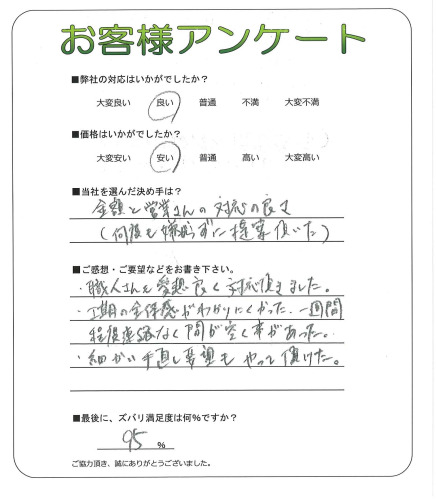 お客様アンケート
■弊社の対応はいかがでしたか？
大変良い 良い 普通 不満 大変不満
■価格はいかがでしたか？
大変安い 安い 普通 高い 大変高い
■当社を選んだ決め手は？
金額と営業さんの対応の良さ
(何度も嫌がらずに提案頂いた)
■ご感想・ご要望などをお書き下さい。
・職人さんも愛想良く対応頂きました。
・工期の全体感がわかりにくかった。一週間
程度連絡なく間が空く事があった。
・細かい手直し要望もやって頂けた。
■最後に、ズバリ満足度は何％ですか？
95 %
ご協力頂き、誠にありがとうございました。